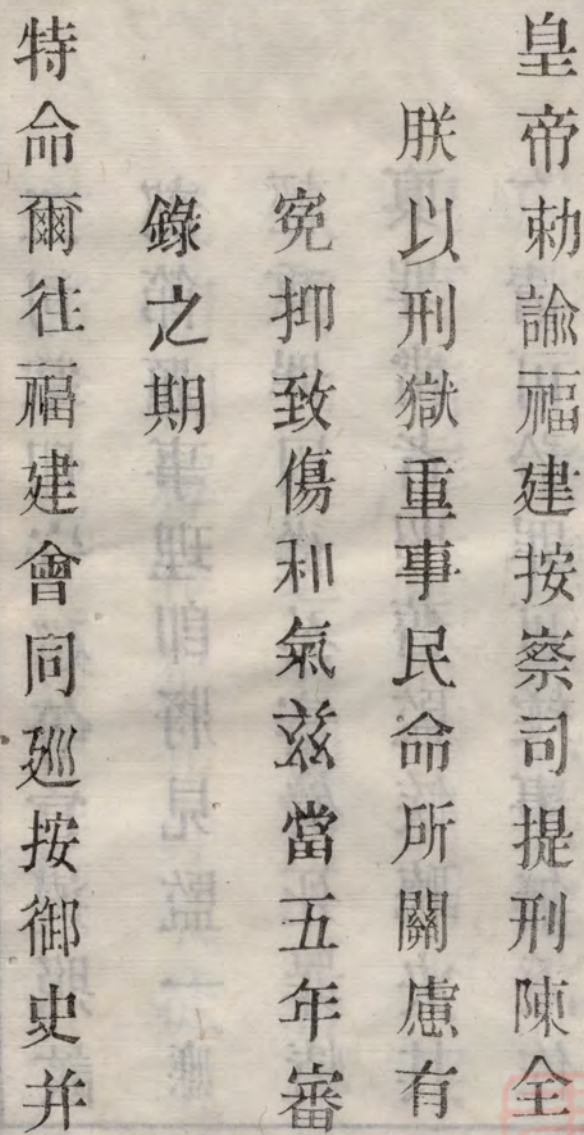 皇帝勅諭福建按察司提刑陳全
朕以刑獄重事民命所關慮有
冤抑致傷和氣茲當五年審
錄之期
特命爾往福建會同廵按御史并